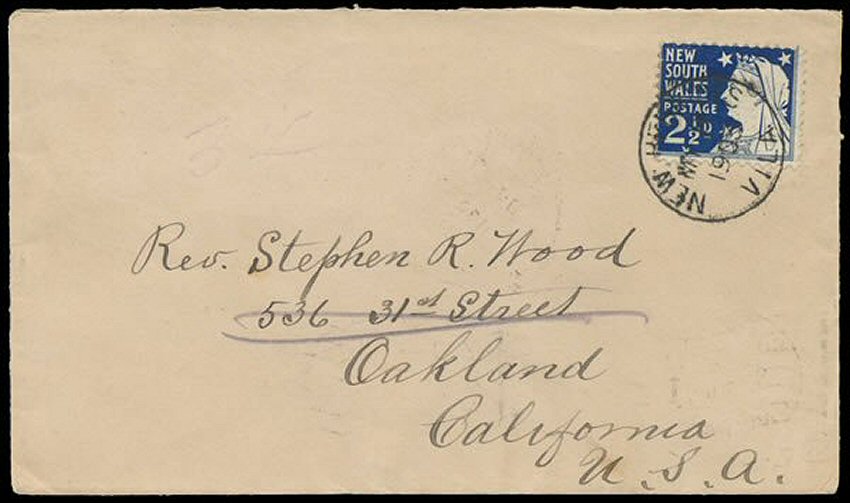 NEW
SOUTH
WALES
POSTAGE
2½D
VILA
NEW
1903
Rev. Stephen R. Wood
536 31st Street
Oakland
California
U.S.A.